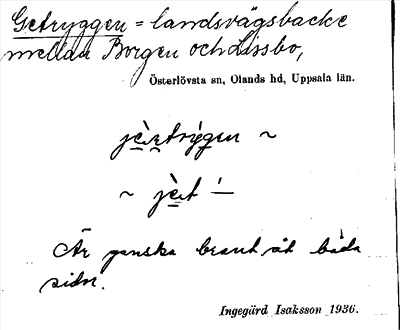 Getryggen = landsvägsbacke
mellan Borgen och Lissbo,
Österlövsta sn, Olands hd, Uppsala län.
~
~ –
Är ganska brant åt båda
sidor.
Ingegärd Isaksson 1936.